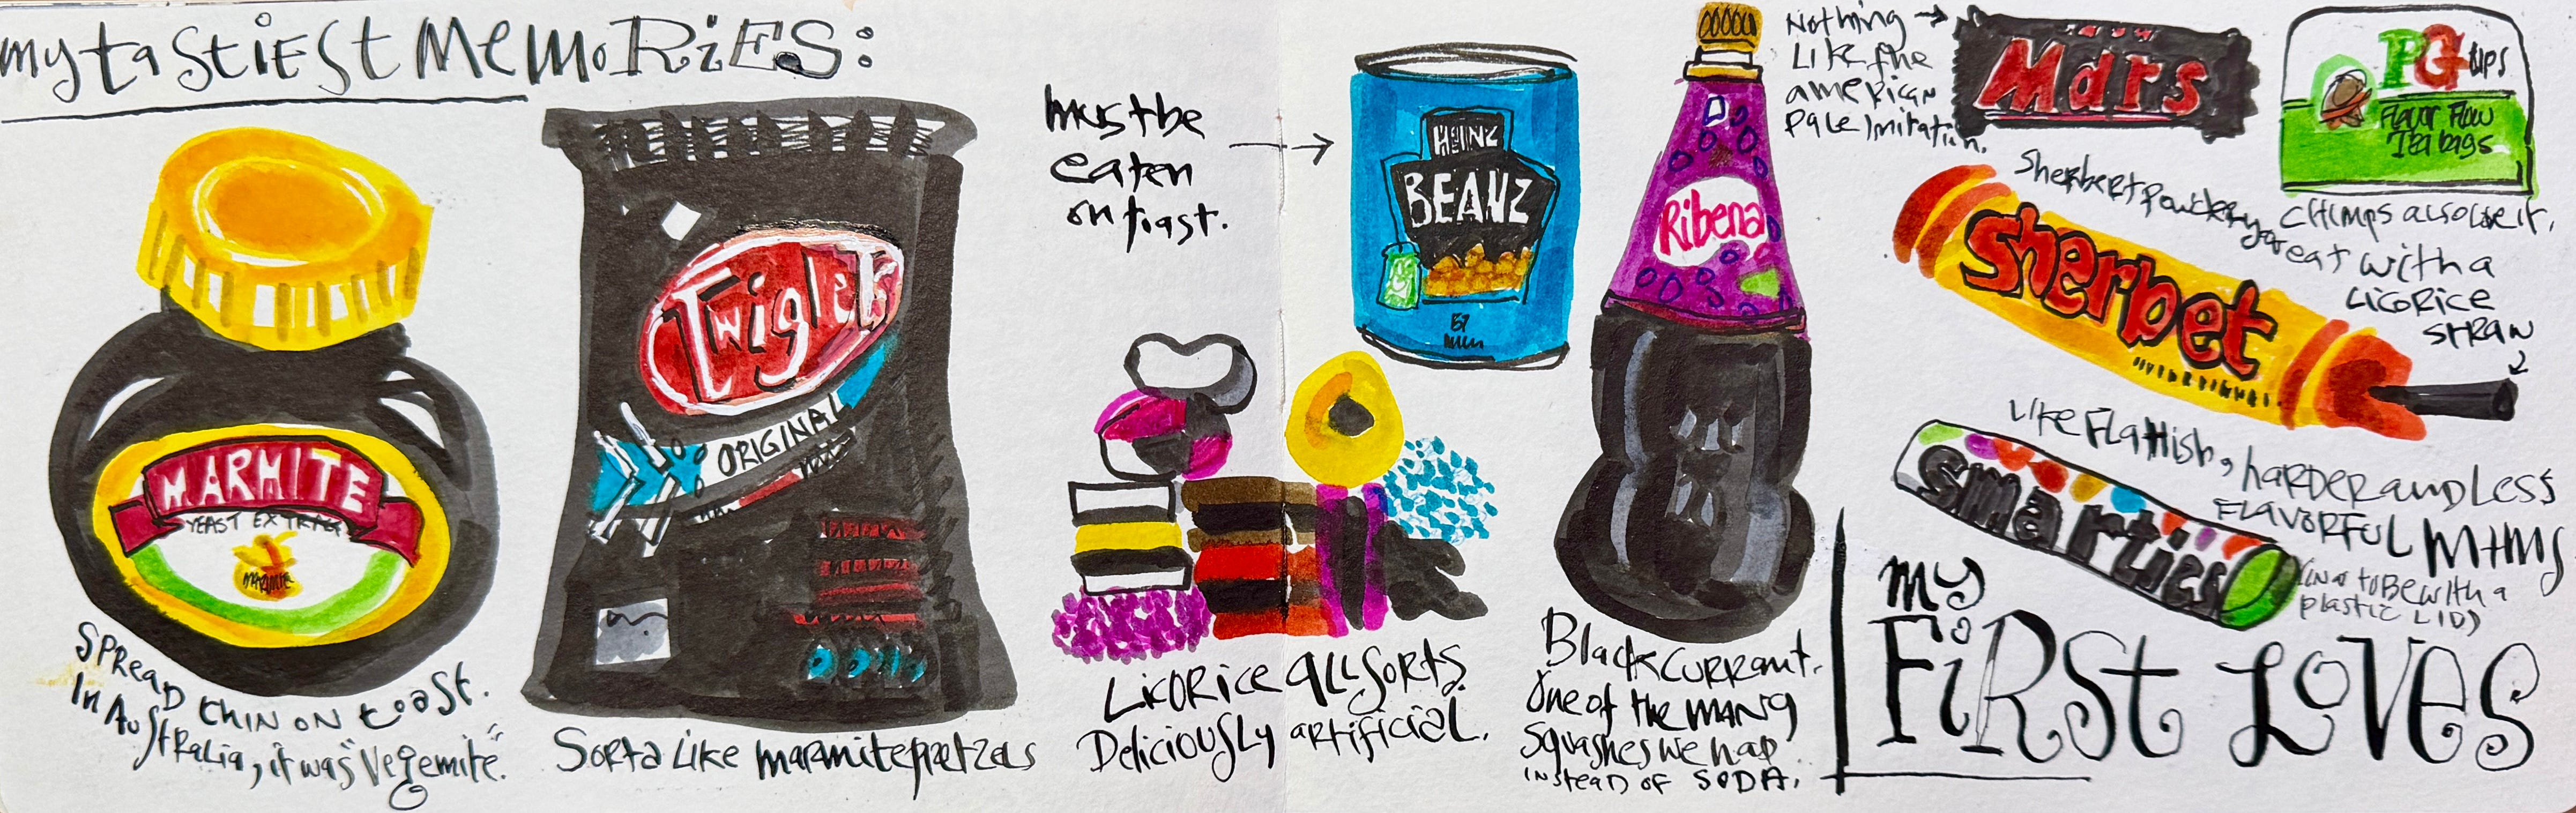 my tastiest Memories:
MARMITE
YEAST EXTRACT
MARMITE
SPREAD THIN ON toast.
In Australia, it was "Vegemite."
Twiglets
ORIGINAL
Sorta Like marmite pretzels
must be
eaten
on toast.
HEINZ
BEANZ
57
Licorice allsorts.
Deliciously artificial.
Ribena
Blackcurrant.
One of the many
squashes we had
instead of SODA.
Nothing
Like the
american
pale imitation.
Mars
PG tips
Flavor Flow
Tea bags
CHIMPS also love it.
Sherbert powder,
great with a
Licorice
STRAW
sherbet
Like Flattish, harder and Less
FLAVORFUL M+Ms
smarties
(used to be with a
plastic LID)
my
FiRST LOVES